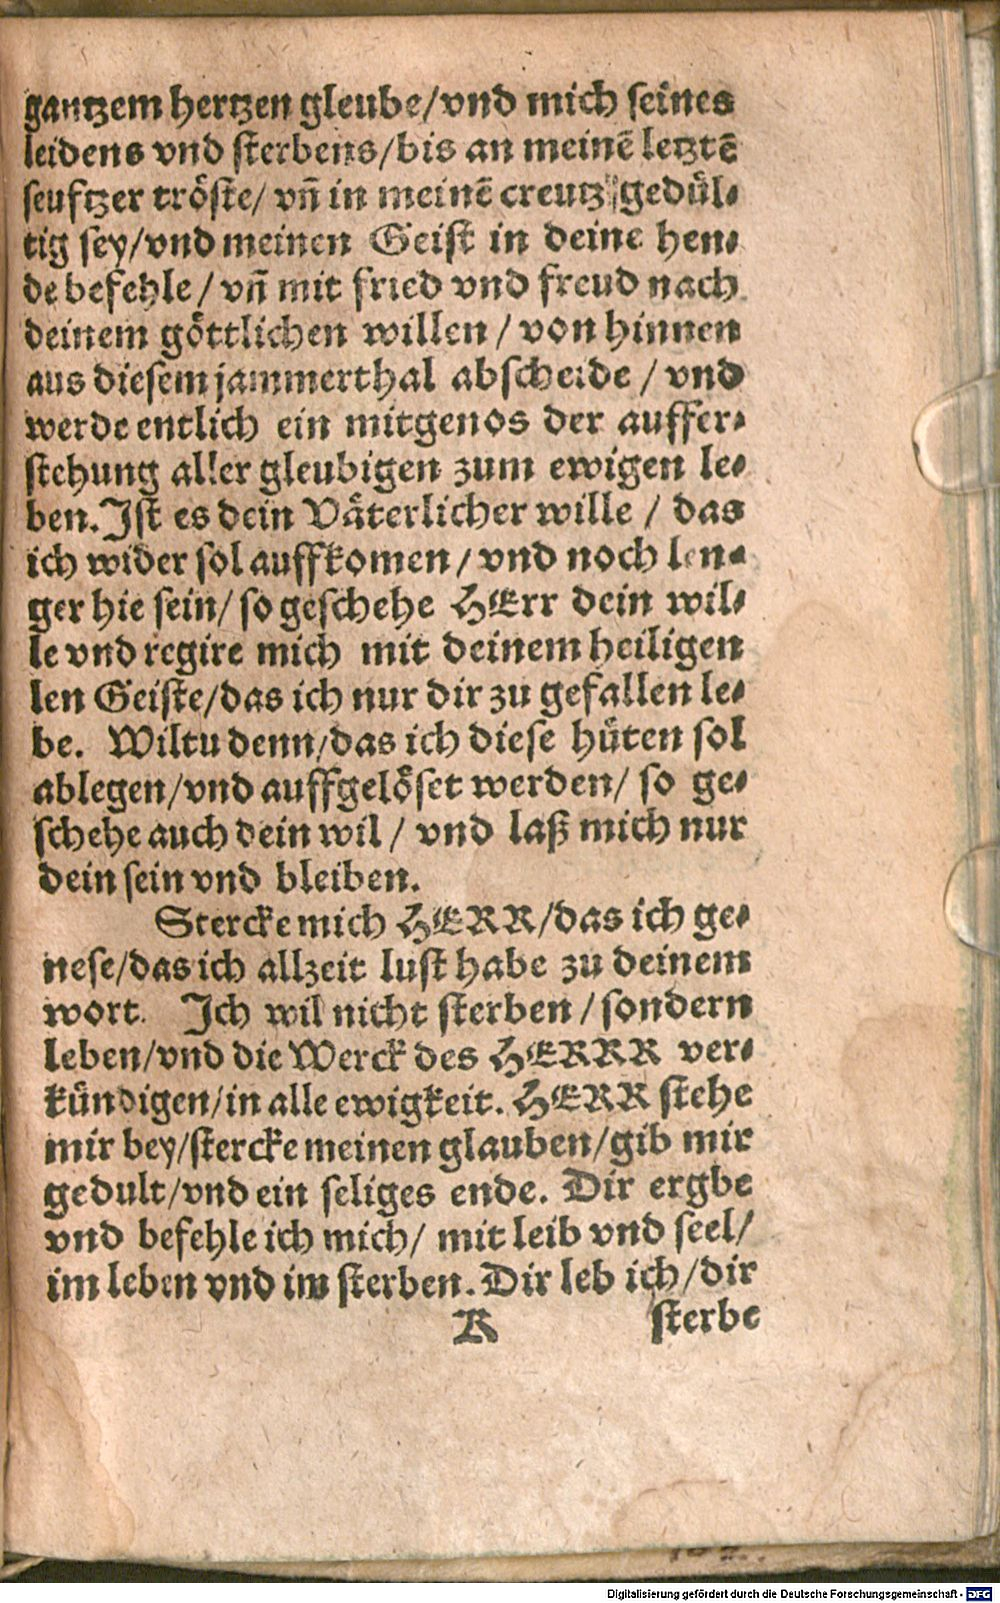 gantzem hertzen gleube/vnd mich seines
leidens vnd sterbens/bis an meinē letztē
seufftzer tröste/ vñ in meinē creutz gedül⸗
tig sey/vnd meinen Geist in deine hen⸗
de befehle/ vñ mit fried vnd freud nach
deinem göttlichen willen/ von hinnen
aus diesem jammerthal abscheide/ vnd
werde entlich ein mitgenos der auffer⸗
stehung aller gleubigen zum ewigen le⸗
ben. Ist es dein Väterlicher wille/ das
ich wider sol auffkomen/ vnd noch len⸗
ger hie sein/ so geschehe HErr dein wil⸗
le vnd regire mich mit deinem heiligen
len Geiste/das ich nur dir zu gefallen le⸗
be. Wiltu denn/das ich diese hüten sol
ablegen/vnd auffgelöset werden/ so ge⸗
schehe auch dein wil/ vnd laß mich nur
dein sein vnd bleiben.
Stercke mich HERR/das ich ge⸗
nese/das ich allzeit lust habe zu deinem
wort. Ich wil nicht sterben/sondern
leben/vnd die Werck des HERRR ver⸗
kündigen/in alle ewigkeit. HERR stehe
mir bey/stercke meinen glauben/gib mir
gedult/vnd ein seliges ende. Dir ergbe
vnd befehle ich mich/ mit leib vnd seel/
im leben vnd im sterben. Dir leb ich/dir
R sterbe
Digitalisierung gefördert durch die Deutsche Forschungsgemeinschaft - DFG